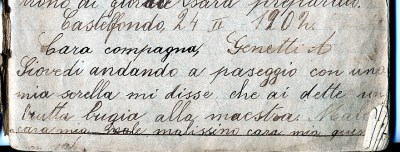 di giorno sarà preparati.
Castelfondo, 24 II 1902.
Cara compagna, Genetti A
Giovedi andando a paseggio con una
mia sorella mi disse che ai dette un
brutta bugia alla maestra.
cara mia malissimo cara mia